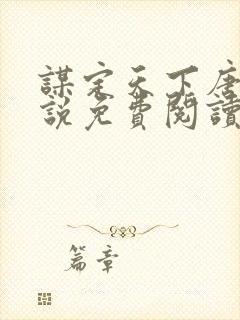 謀定天下唐
說免費閱讀
篇章